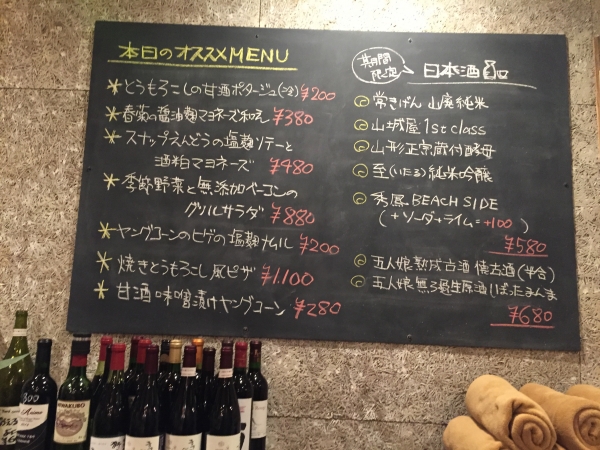 本日のオススメMENU
*とうもろこしの甘酒ポタージュ(冷) ¥200
*春菊の醤油麹マヨネーズ和え ¥380
*スナップえんどうの塩麹ソテーと
酒粕マヨネーズ ¥480
*季節野菜と無添加ベーコンの
グリルサラダ ¥880
*ヤングコーンのヒゲの塩麹ナムル ¥200
*焼きとうもろこし風ピザ ¥1.100
*甘酒味噌漬けヤングコーン ¥280
期間
限定
日本酒
常きげん 山廃純米
山城屋 1st class
山形正宗 蔵付酵母
至(いたる)純米吟醸
秀鳳 BEACH SIDE
(+ソーダ+ライム=+100)
¥580
五人娘 熟成古酒 懐古酒(半合)
五人娘 無ろ過生原酒 しぼったまんま
¥680